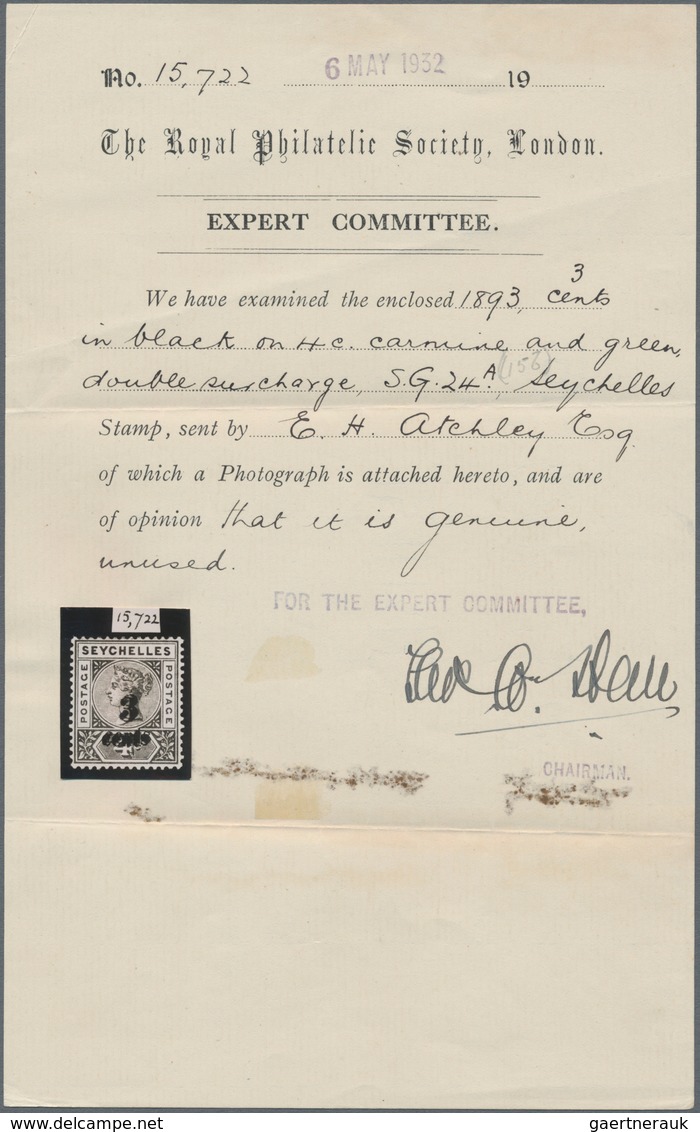 No. 15,722 6 MAY 1932 19
The Royal Philatelic Society, London.
EXPERT COMMITTEE.
3
We have examined the enclosed 1893, cents
in black on 4c. carmine and green,
double surcharge, S.G. 24A. (15b) Seychelles
Stamp, sent by E. H. Atchley Esq
of which a Photograph is attached hereto, and are
of opinion that it is genuine,
unused.
FOR THE EXPERT COMMITTEE,
15,722
SEYCHELLES
POSTAGE
POSTAGE
3
cents
CHAIRMAN.
www.delcampe.net
gaertnerauk